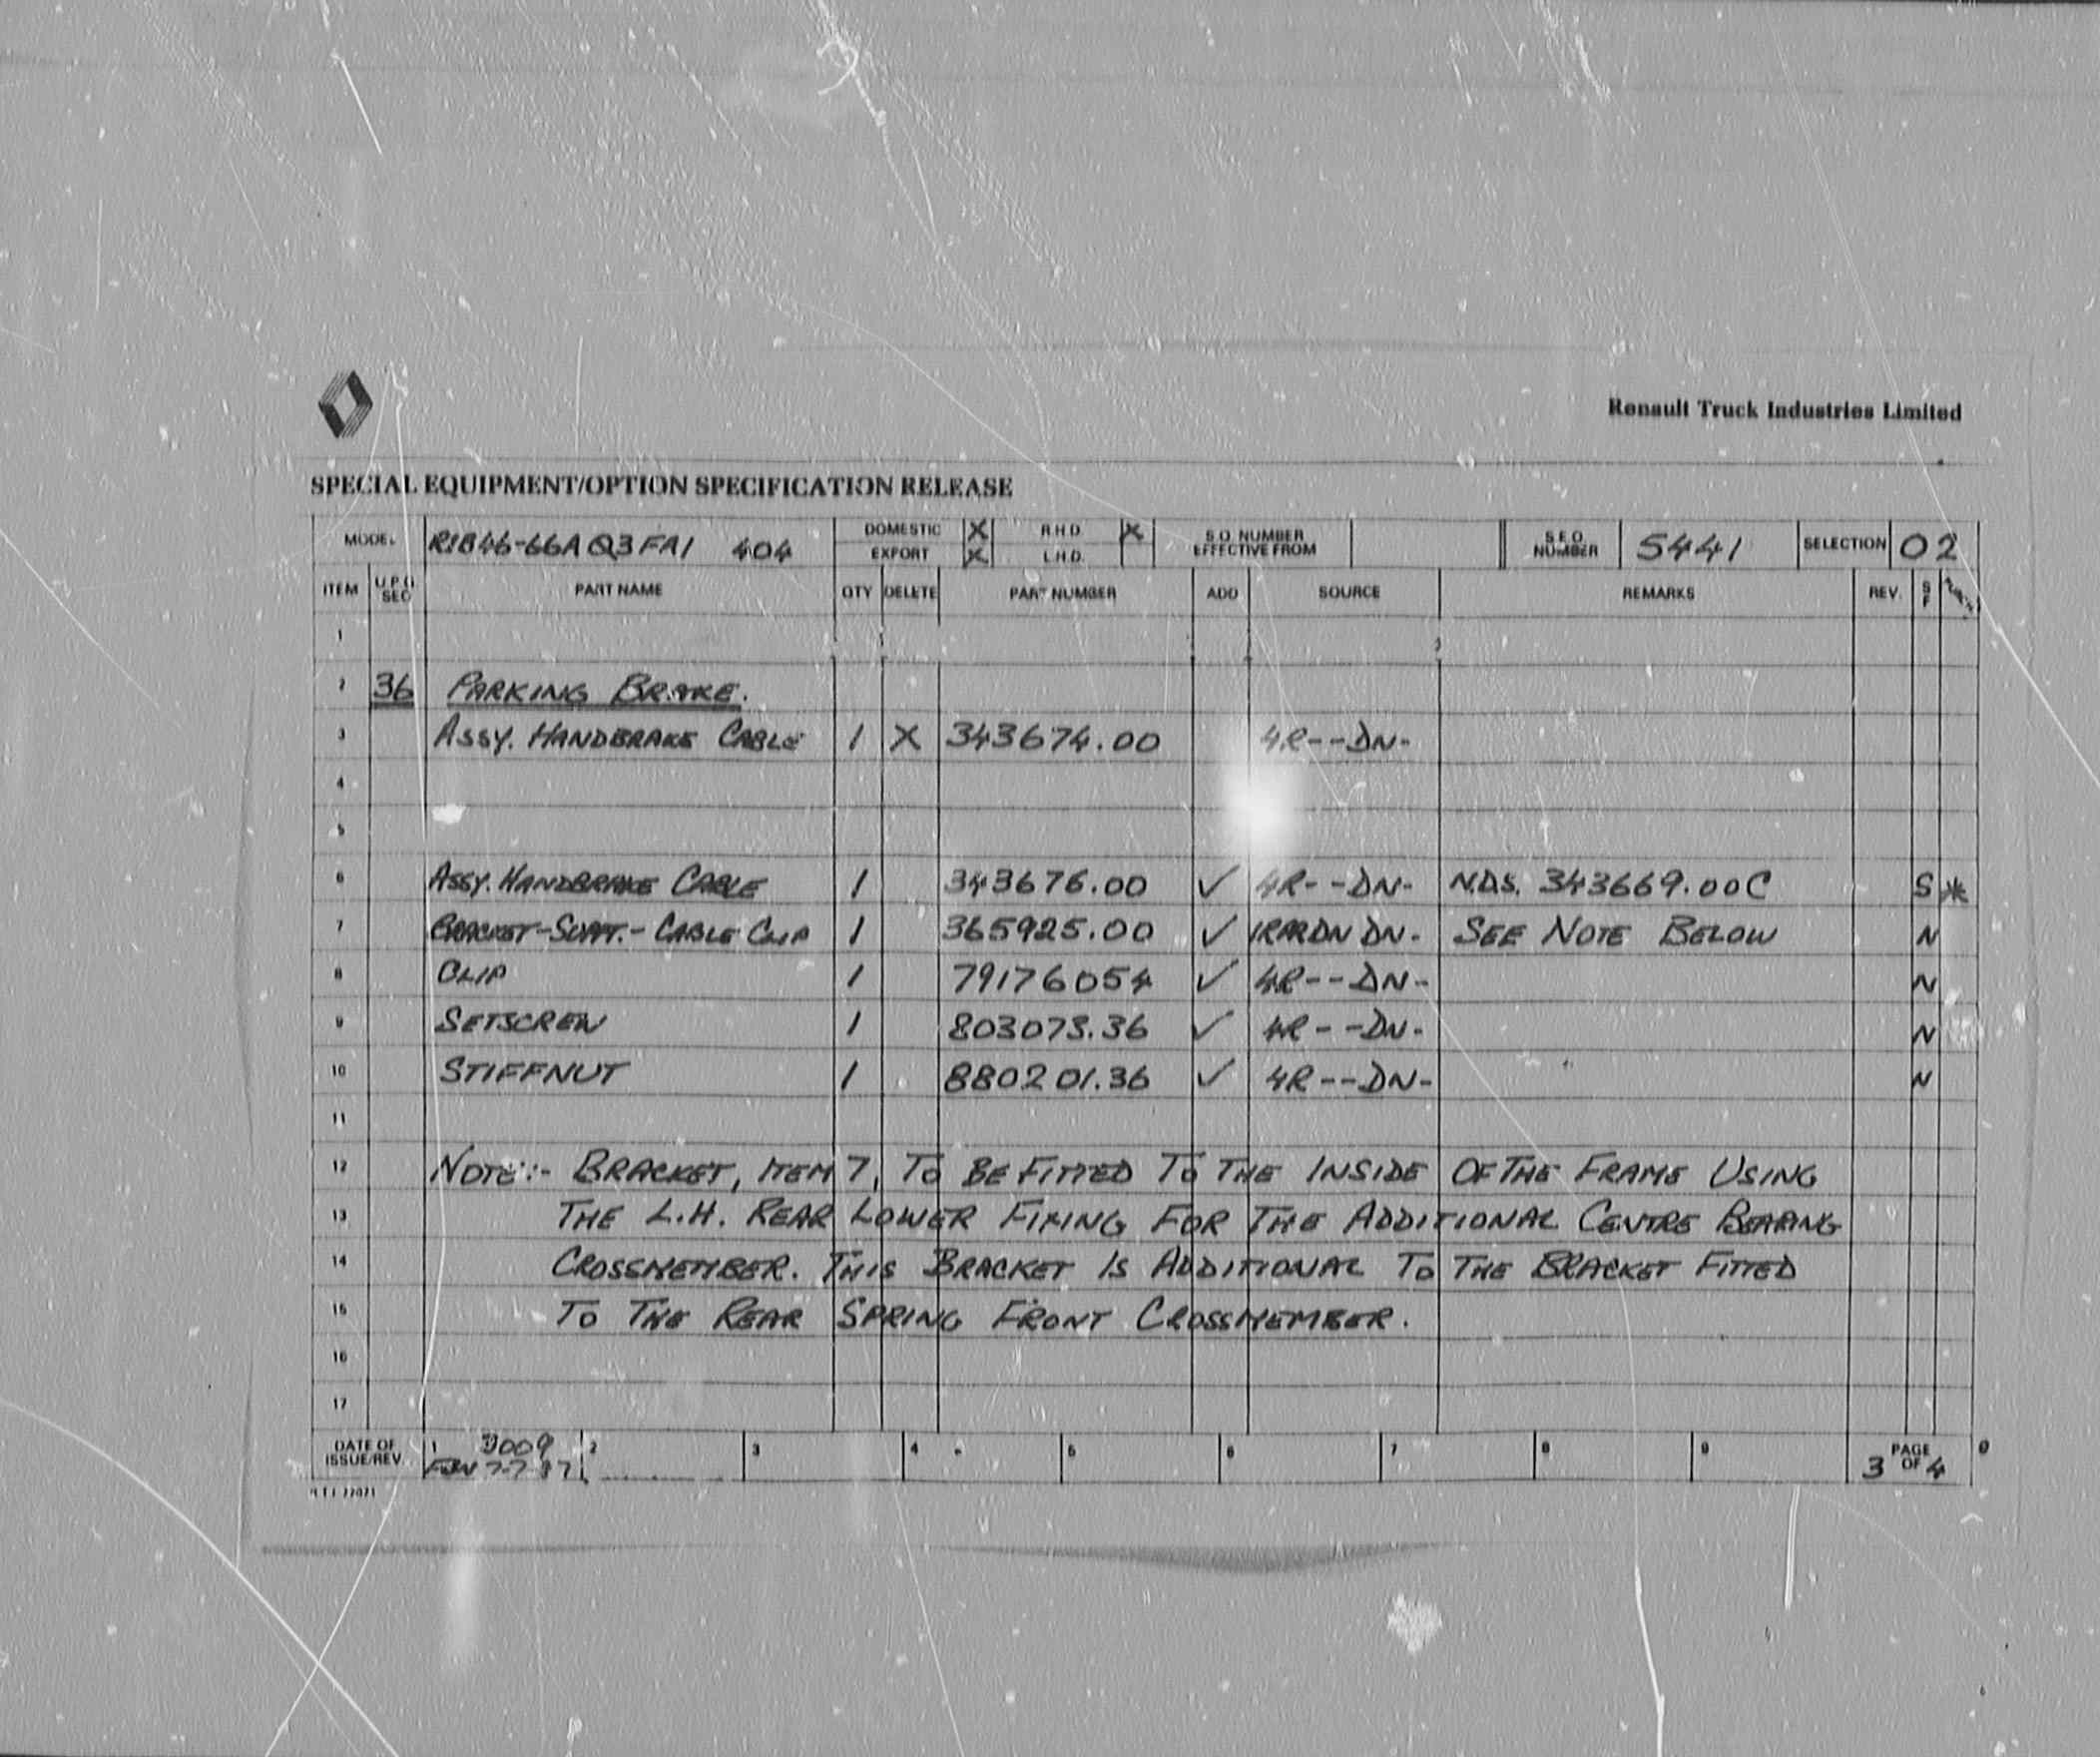 Renault Truck Industries Limited
SPECIAL EQUIPMENT/OPTION SPECIFICATION RELEASE
MODEL R1846-66A Q3FA1 404 DOMESTIC X R.H.D. X S.O. NUMBER EFFECTIVE FROM S.E.O. NUMBER 5441 SELECTION 02
EXPORT X L.H.D.
ITEM U.P.G SEC PART NAME QTY DELETE PART NUMBER ADD SOURCE REMARKS REV. S F
1
2 36 PARKING BRAKE.
3 ASSY. HANDBRAKE CABLE 1 X 343674.00 4R--DN-
4
5
6 ASSY. HANDBRAKE CABLE 1 343676.00 ✓ 4R--DN- N.D.S. 343669.00C S *
7 BRACKET-SUPPT.-CABLE CLIP 1 365925.00 ✓ SEE NOTE BELOW N
8 CLIP 1 79176054 ✓ 4R--DN- N
9 SETSCREW 1 803073.36 ✓ 4R--DN- N
10 STIFFNUT 1 880201.36 ✓ 4R--DN- N
11
12 NOTE:- BRACKET, ITEM 7, TO BE FITTED TO THE INSIDE OF THE FRAME USING
13 THE L.H. REAR LOWER FIXING FOR THE ADDITIONAL CENTRE BEARING
14 CROSSMEMBER. THIS BRACKET IS ADDITIONAL TO THE BRACKET FITTED
15 TO THE REAR SPRING FRONT CROSSMEMBER.
16
17
DATE OF ISSUE/REV. 1 2 3 4 5 6 7 8 9 PAGE 3 OF 4